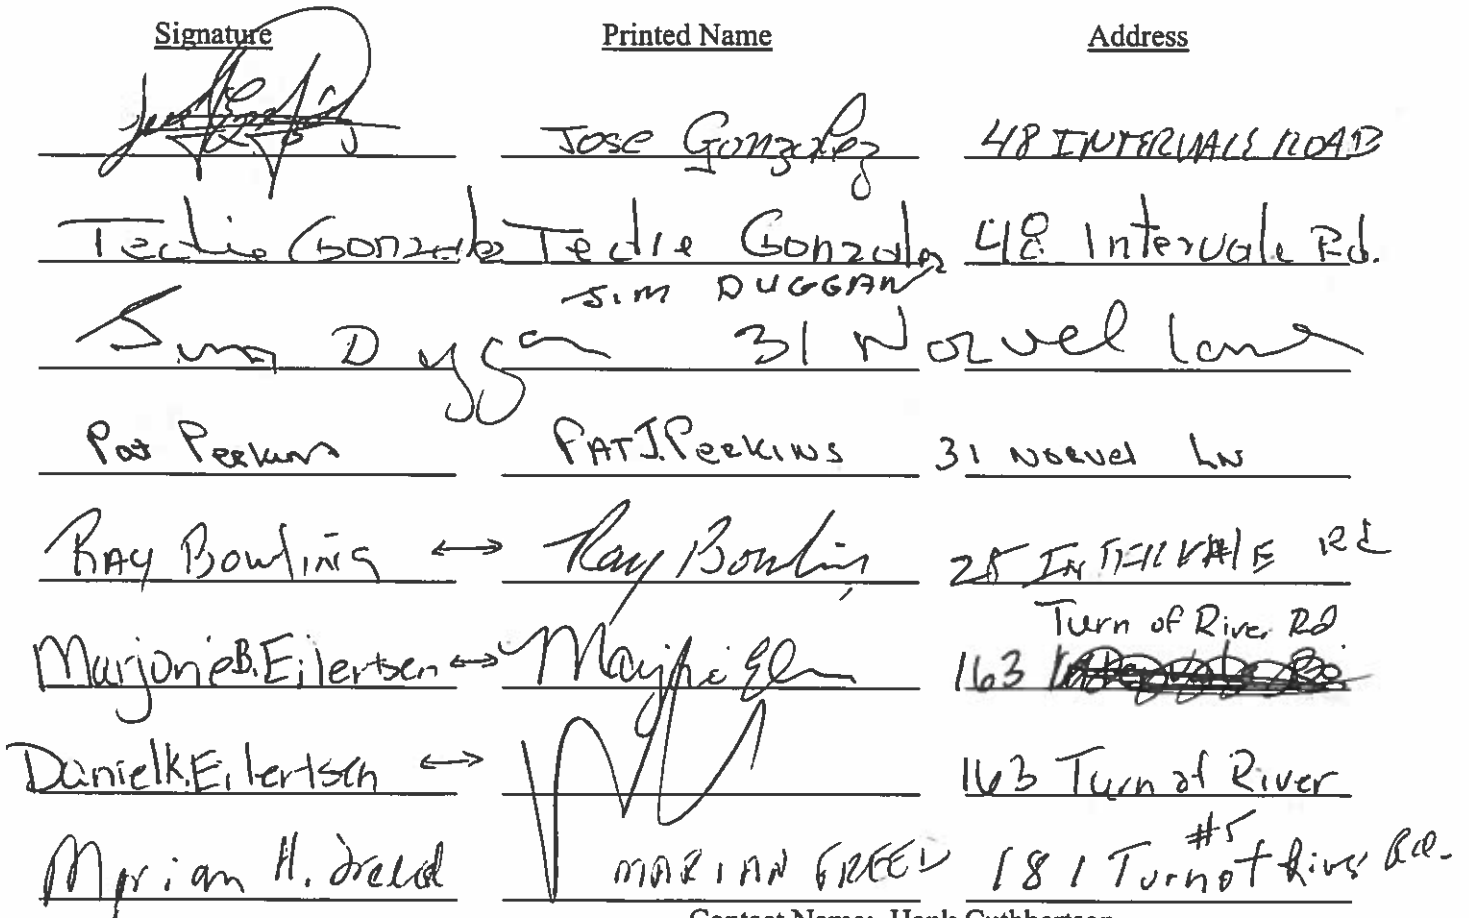 Signature Printed Name Address
Jose Gonzalez 48 INTERVALE ROAD
Teddie Gonzalez Teddie Gonzalez 48 Intervale Rd.
JIM DUGGAN
Jim Duggan 31 Norvel Lane
Pat Perkins PAT J. PERKINS 31 NORVEL LN
RAY Bowling ↔ Ray Bowling 25 INTERVALE Rd
Turn of River Rd
Marjorie B. Eilertsen ↔ 163
Daniel K. Eilertsen ↔ 163 Turn of River
#5
Marian H. Freed MARIAN FREED 181 Turn of River Rd.
Contact Name: Hank Cuthbertson